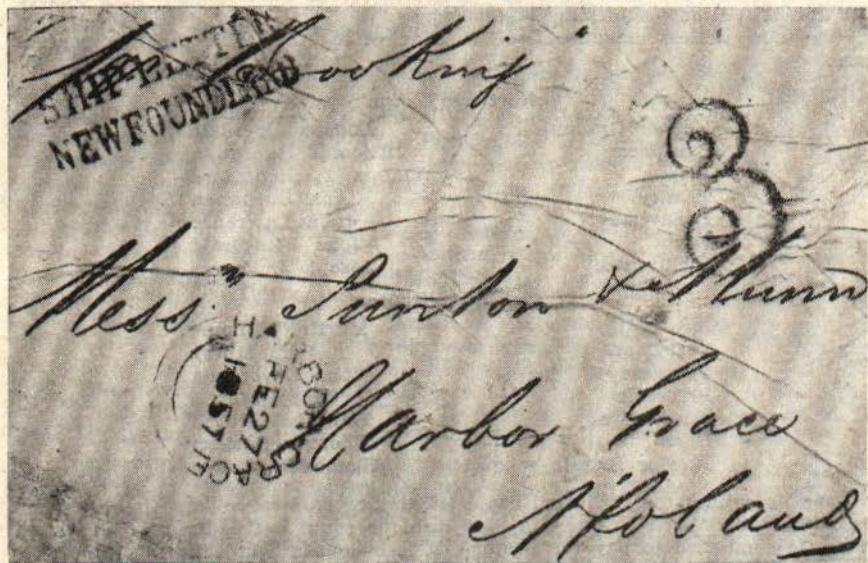 SHIP-LETTER
NEWFOUNDLAND
Hooking
3
Mess. Punton & Munn
HARBOR GRACE
FE 27
1857
Harbor Grace
Nfoland